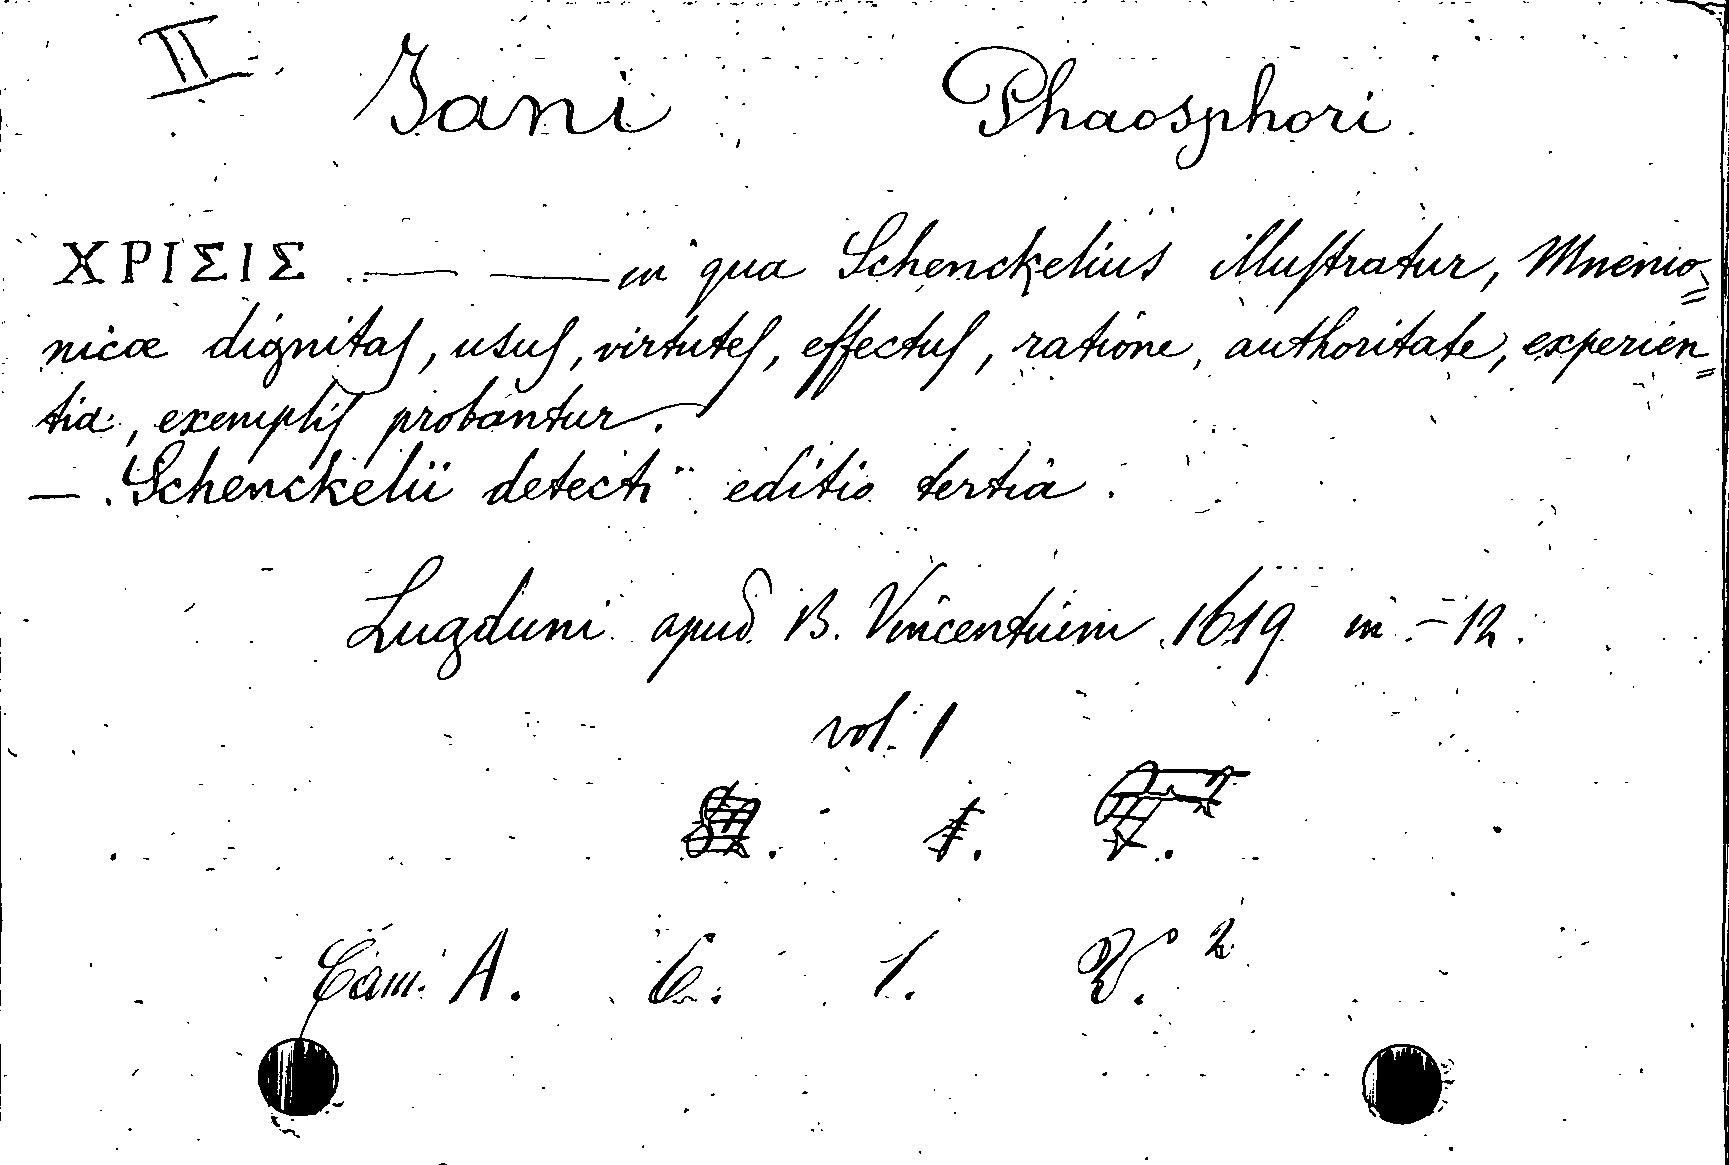 II
Jani Phaosphori
ΧΡΙΣΙΣ — — in qua Schenckelius illuſtratur, Mnemo=
nicæ dignitaſ, usuſ, virtuteſ, effectuſ, ratione, authoritate, experien=
tia, exempliſ probantur.
— Schenckelii detecti editio tertia.
Lugduni apud B. Vincentium 1619 in-12.
vol. 1
Cam. A. 6. 1.